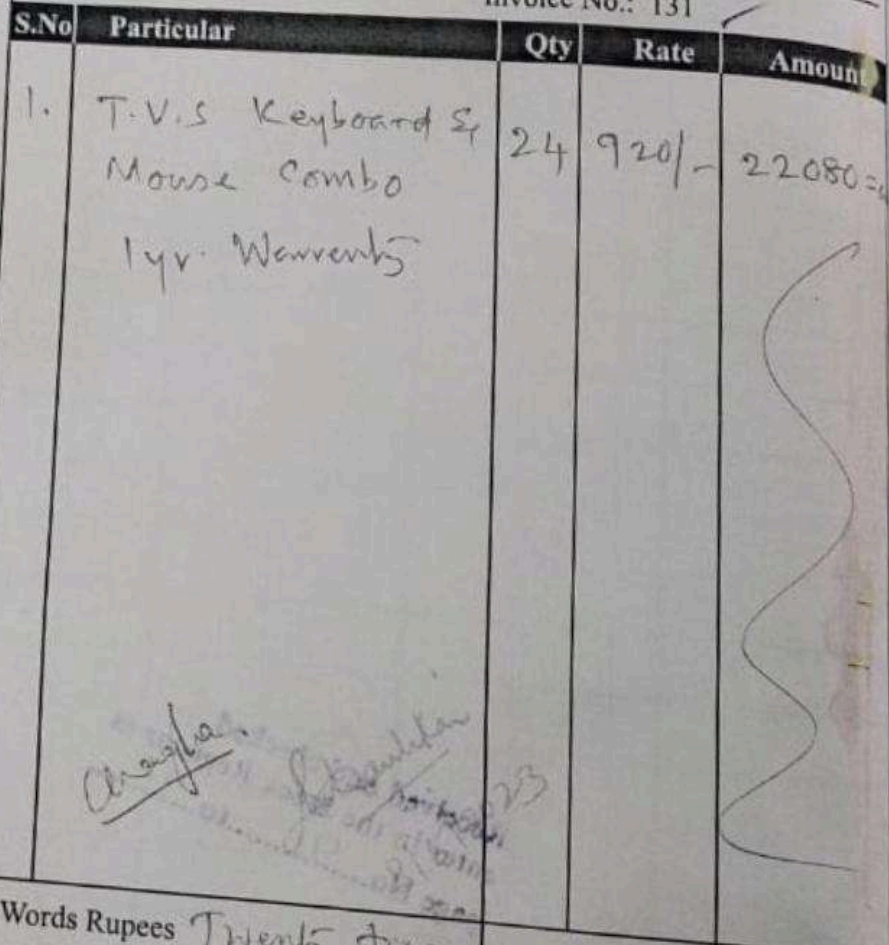 Invoice No.: 131
S.No Particular Qty Rate Amount
1. T.V.S Keyboard & 24 920/- 22080=
Mouse Combo
1yr. Warrenty
23
Words Rupees Twenty